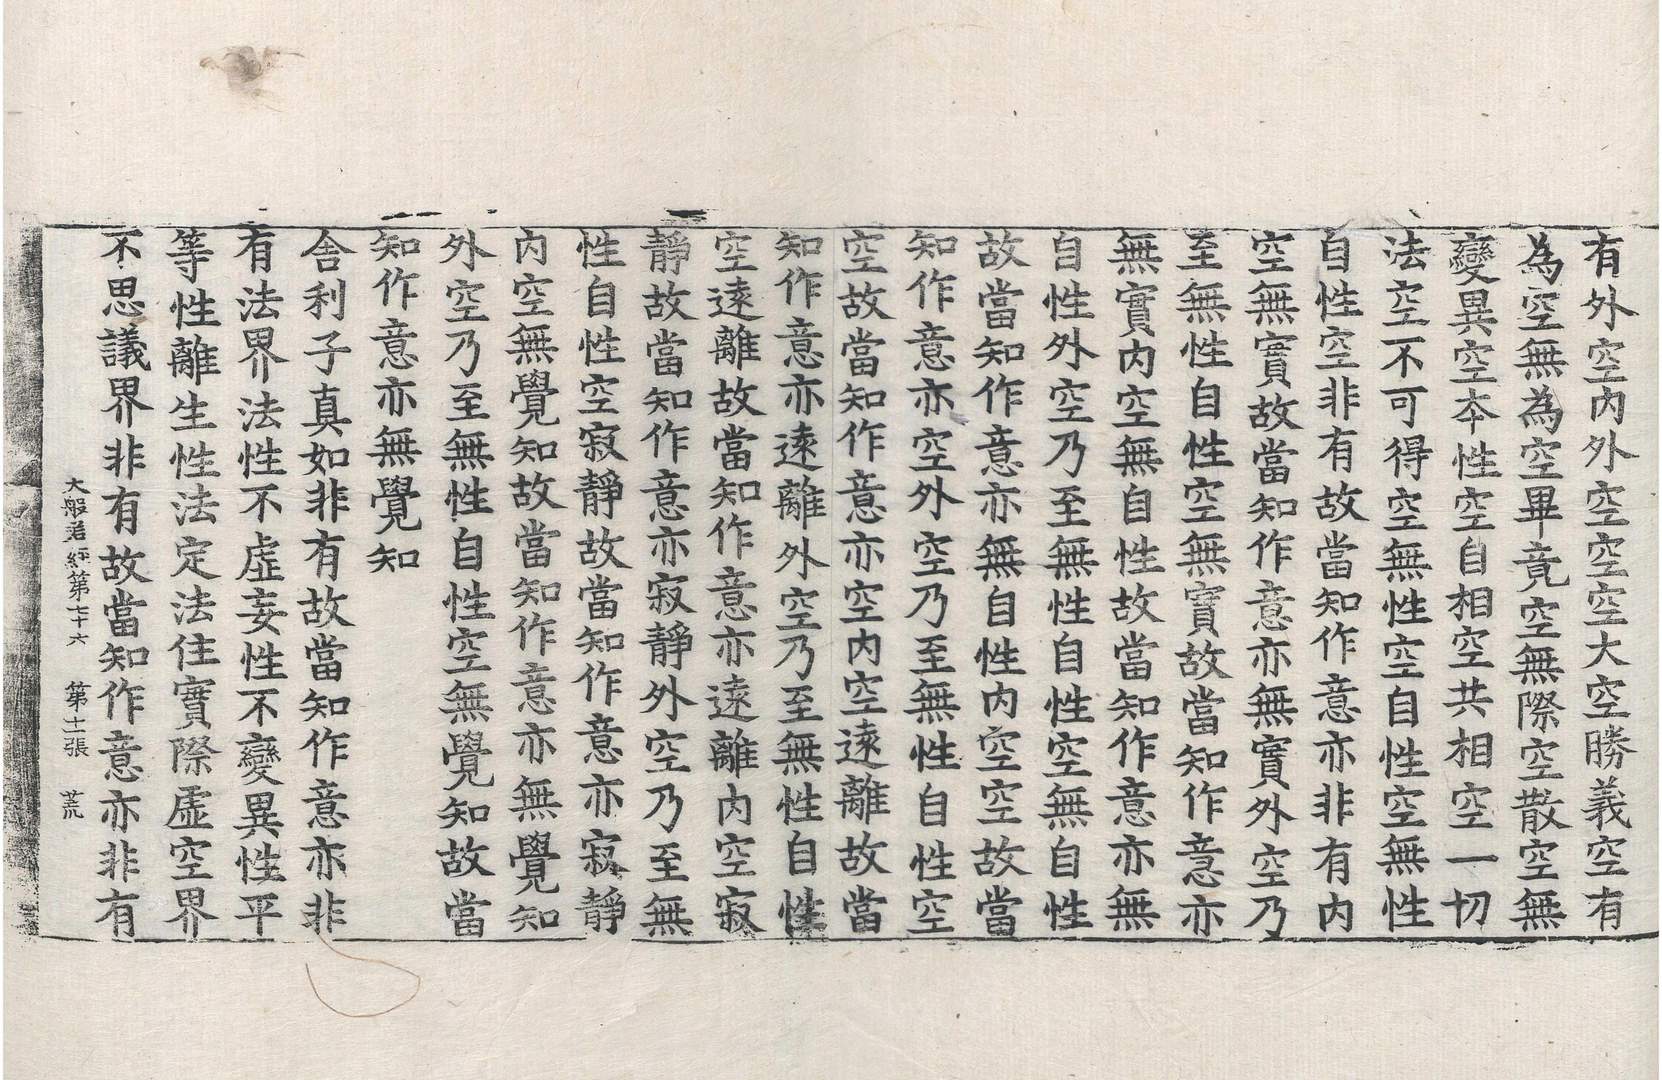 有外空内外空空空大空勝義空有
為空無為空畢竟空無際空散空無
變異空本性空自相空共相空一切
法空不可得空無性空自性空無性
自性空非有故當知作意亦非有内
空無實故當知作意亦無實外空乃
至無性自性空無實故當知作意亦
無實内空無自性故當知作意亦無
自性外空乃至無性自性空無自性
故當知作意亦無自性内空空故當
知作意亦空外空乃至無性自性空
空故當知作意亦空内空遠離故當
知作意亦遠離外空乃至無性自性
空遠離故當知作意亦遠離内空寂
靜故當知作意亦寂靜外空乃至無
性自性空寂靜故當知作意亦寂靜
内空無覺知故當知作意亦無覺知
外空乃至無性自性空無覺知故當
知作意亦無覺知
舎利子真如非有故當知作意亦非
有法界法性不虛妄性不變異性平
等性離生性法定法住實際虛空界
不思議界非有故當知作意亦非有
大般若經第七十六　第十一張　荒